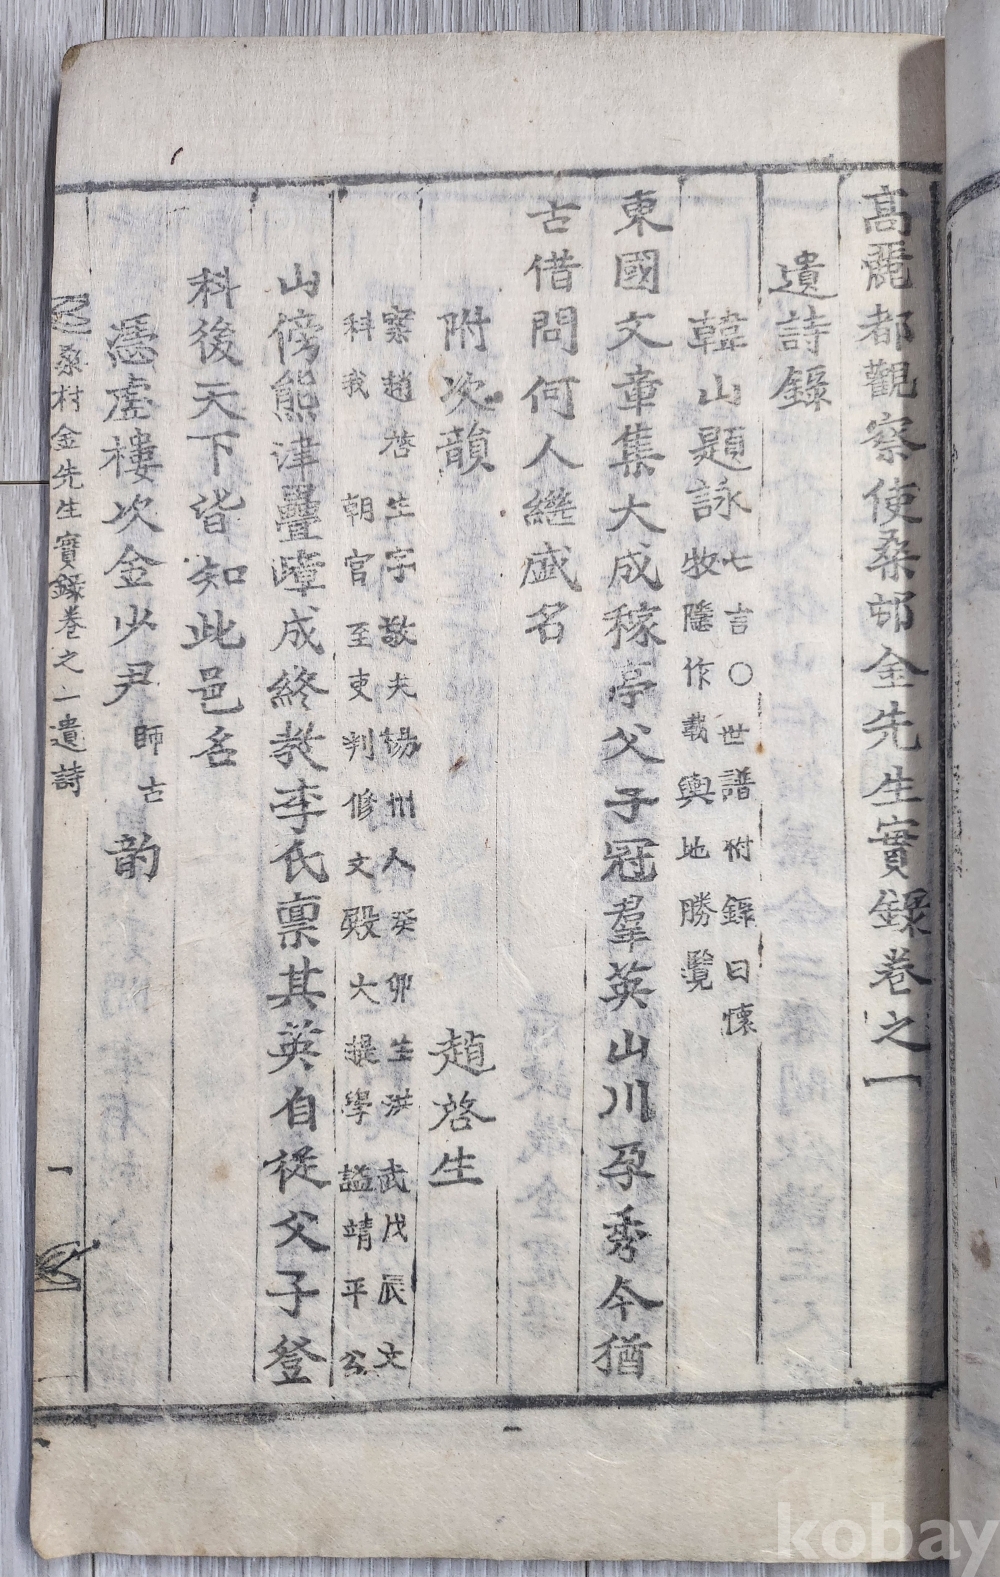 高麗都觀察使桑邨金先生實錄卷之一
遺詩錄
韓山題詠
七言〇世譜附錄曰懷
牧隱作載輿地勝覽
東國文章集大成稼亭父子冠羣英山川孕秀今猶
古借問何人繼盛名
附次韻 趙啓生
案趙啓生字敬夫楊州人癸卯生洪武戊辰文
科我 朝官至吏判修文殿大提學 謚靖平公
山傍熊津疊嶂成終敎李氏禀其英自從父子登
科後天下皆知此邑名
憑虛樓次金少尹 師古 韵
桑村金先生實錄卷之一 遺詩 一
kobay